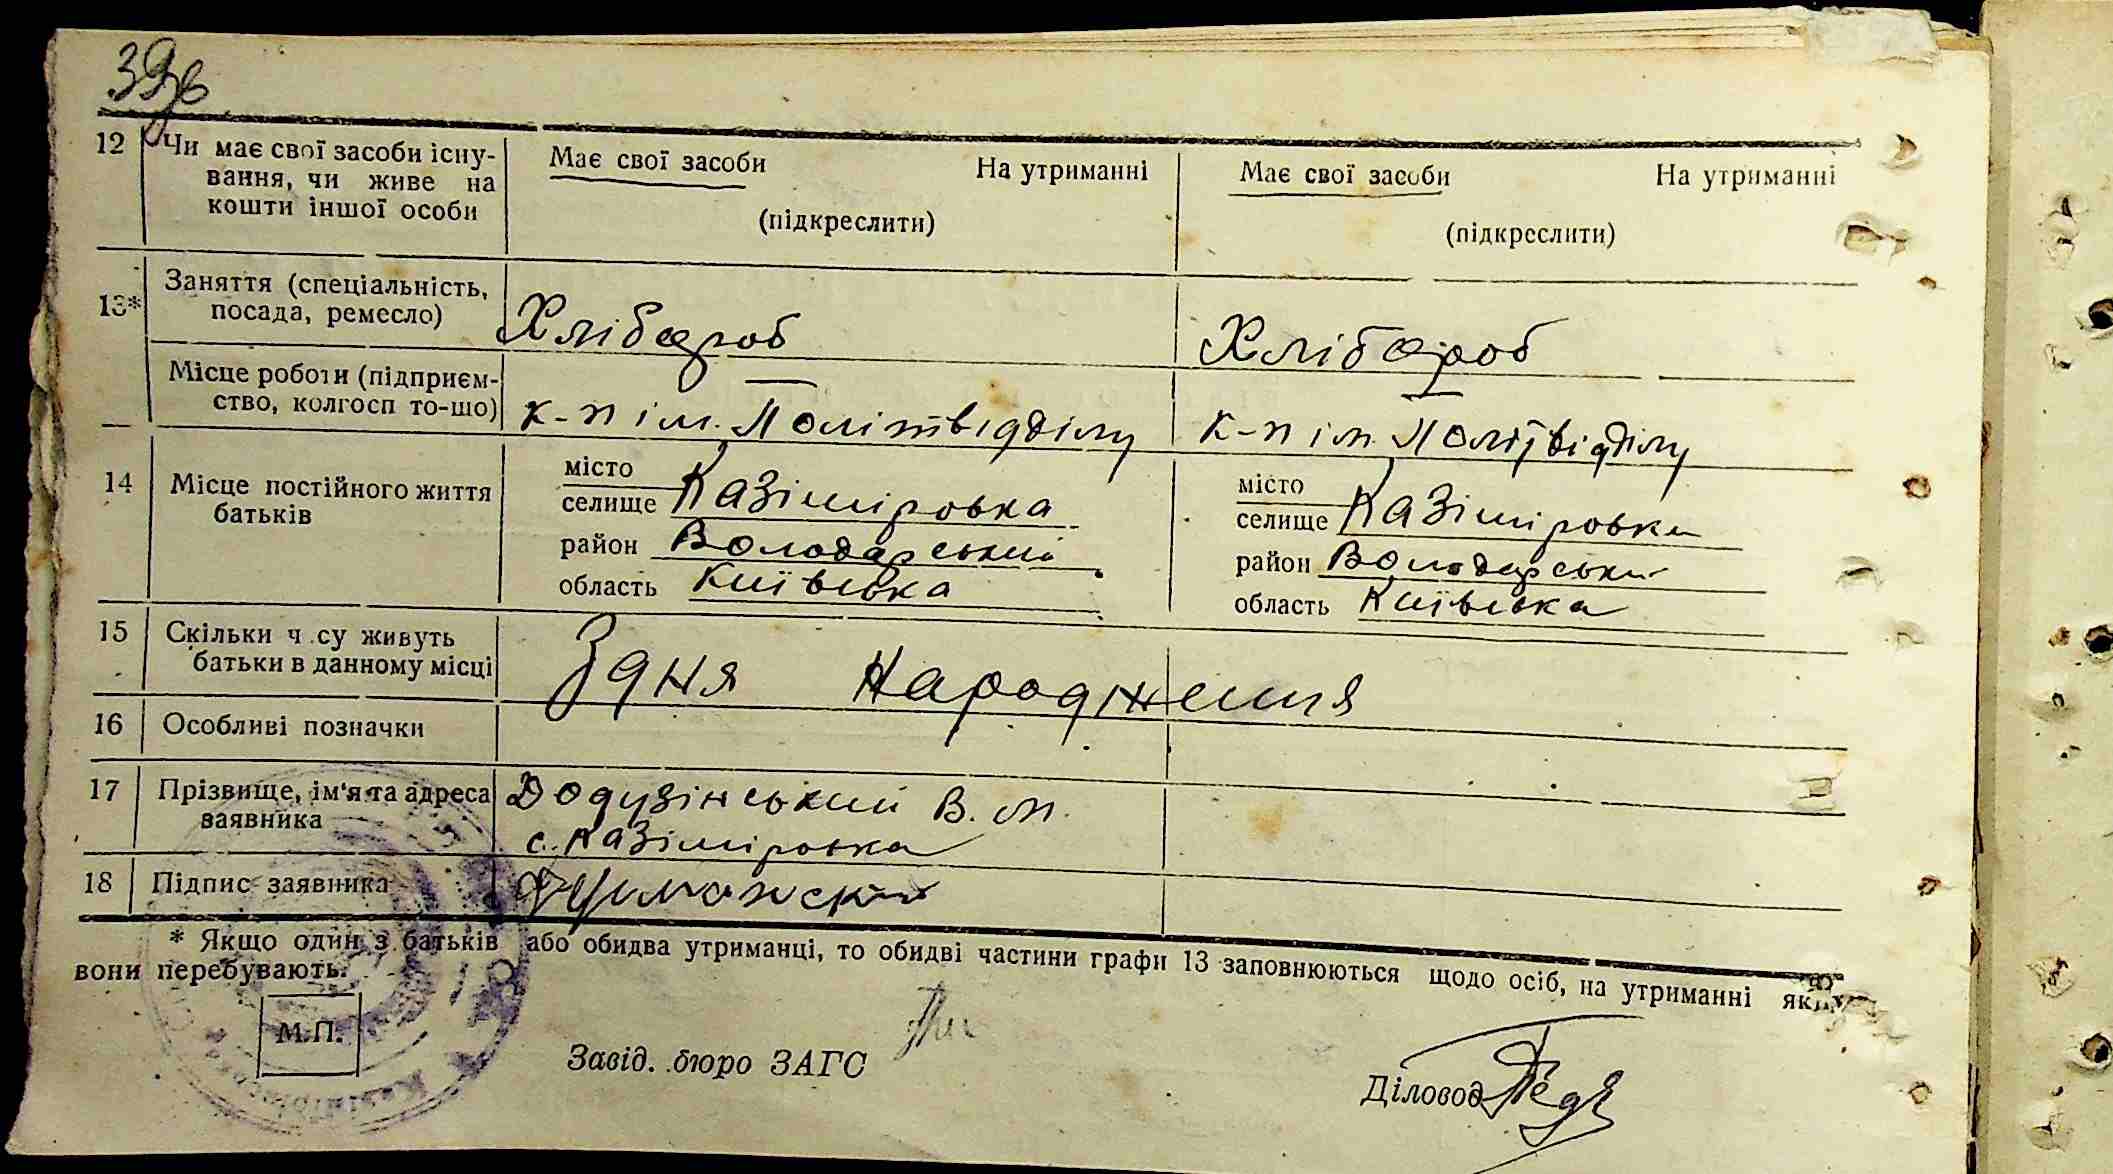 39зв
12 Чи має свої засоби існу- Має свої засоби На утриманні Має свої засоби На утриманні
вання, чи живе на
кошти іншої особи (підкреслити) (підкреслити)
13* Заняття (спеціальність,
посада, ремесло) Хлібороб Хлібороб
Місце роботи (підприєм-
ство, колгосп то-що) к-п ім. Політвідділу к-п ім. Політвідділу
14 Місце постійного життя місто місто
батьків селище Казіміровка селище Казіміровка
район Володарський район Володарський
область Київська область Київська
15 Скільки ч су живуть
батьки в данному місці З дня народження
16 Особливі позначки
17 Прізвище, ім'я та адреса Додузінський В. М.
заявника с. Казіміровка
18 Підпис заявника
* Якщо один з батьків або обидва утриманці, то обидві частини графи 13 заповнюються щодо осіб, на утриманні яких
вони перебувають.
М.П.
Завід. бюро ЗАГС
Діловод